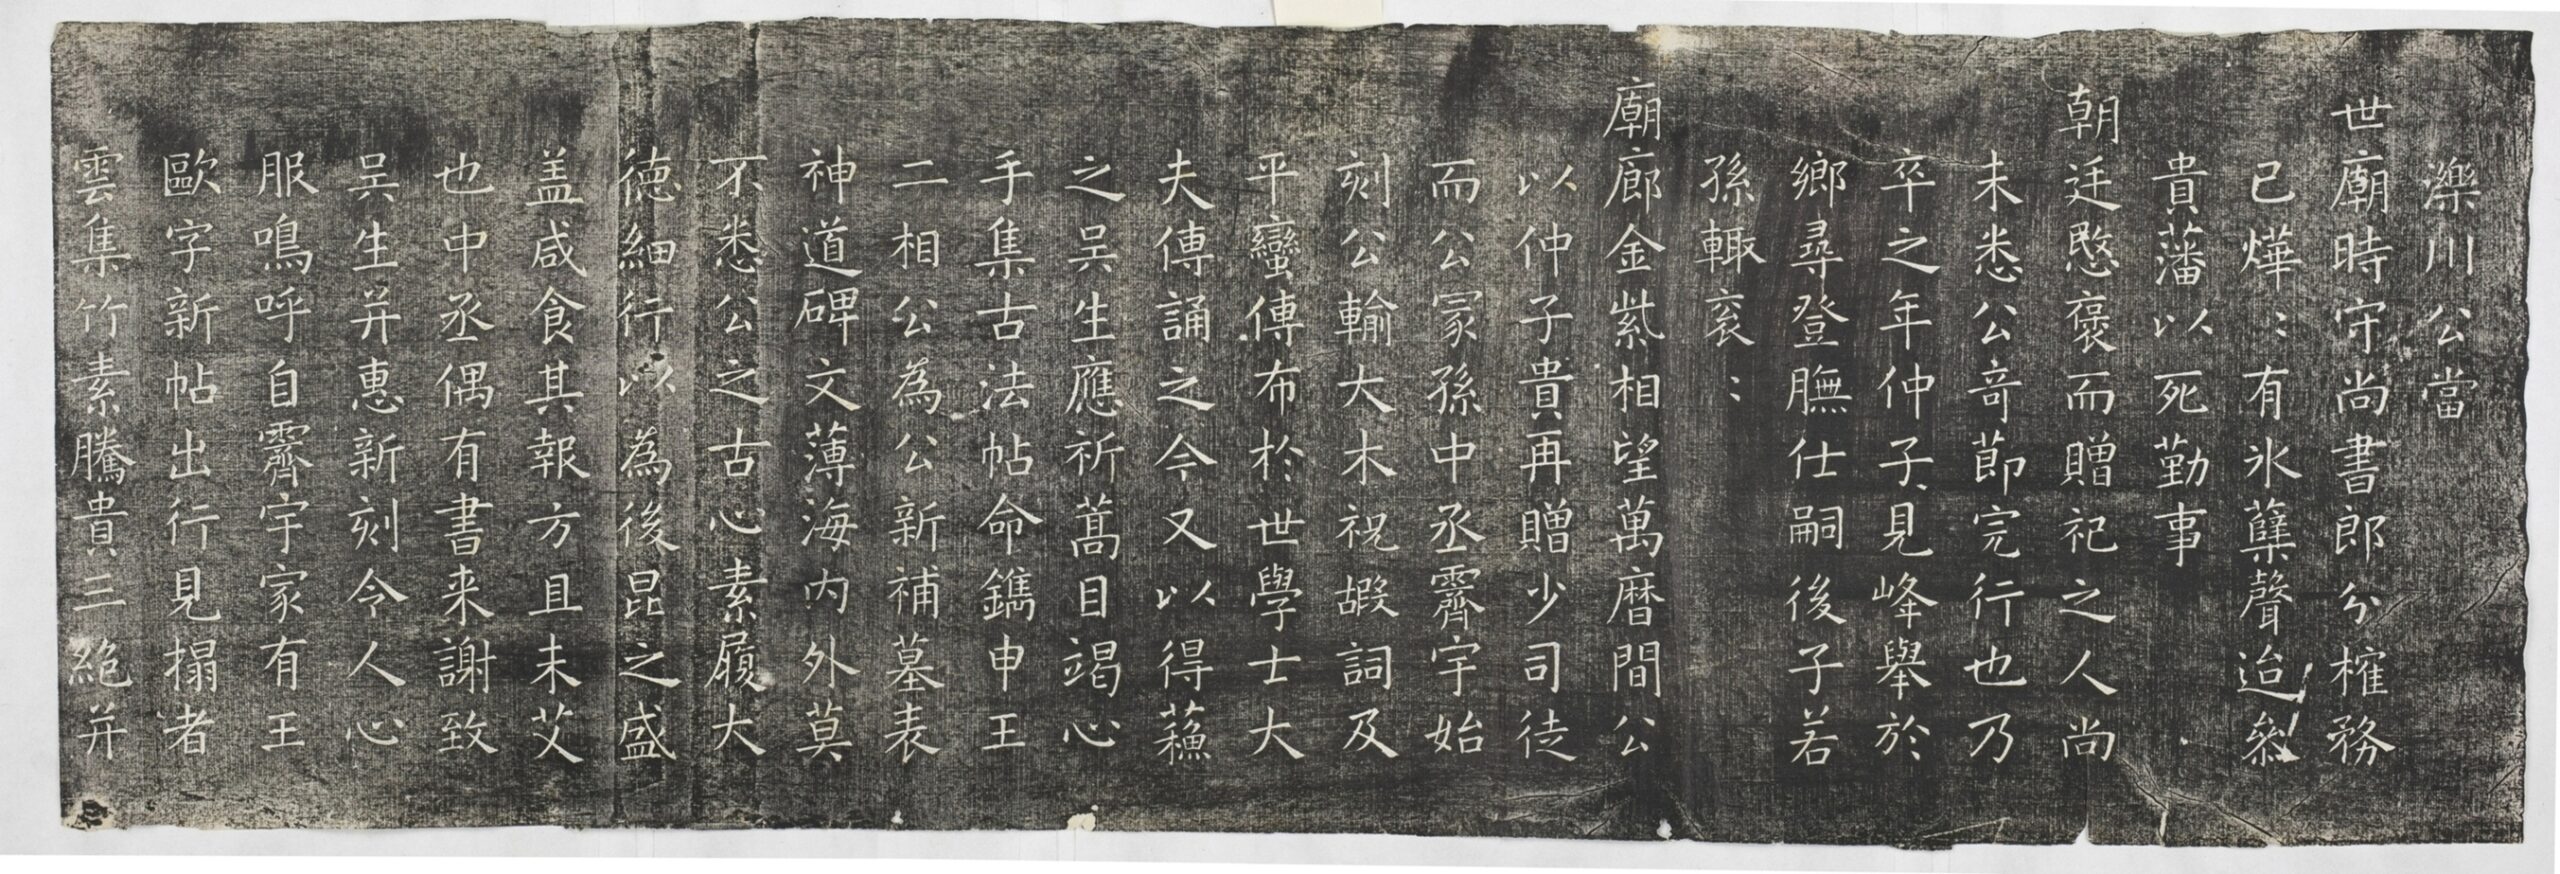 濼川公當
世廟時守尚書郎分榷務
已燁〻有氷蘖聲迨叅
貴藩以死勤事
朝廷愍褒而贈祀之人尚
未悉公竒節完行也乃
卒之年仲子見峰舉於
鄉尋登膴仕嗣後子若
孫輙衮〻
廟廊金紫相望萬曆間公
以仲子貴再贈少司徒
而公冡孫中丞霽宇始
刻公輸大木祝嘏詞及
平蠻傳布於世學士大
夫傳誦之今又以得蘓
之吴生應祈蒿目竭心
手集古法帖命鐫申王
二相公為公新補墓表
神道碑文薄海内外莫
不悉公之古心素履大
徳細行以為後昆之盛
盖咸食其報方且未艾
也中丞偶有書来謝致
吴生并惠新刻令人心
服鳴呼自霽宇家有王
歐字新帖出行見搨者
雲集竹素騰貴三絶并